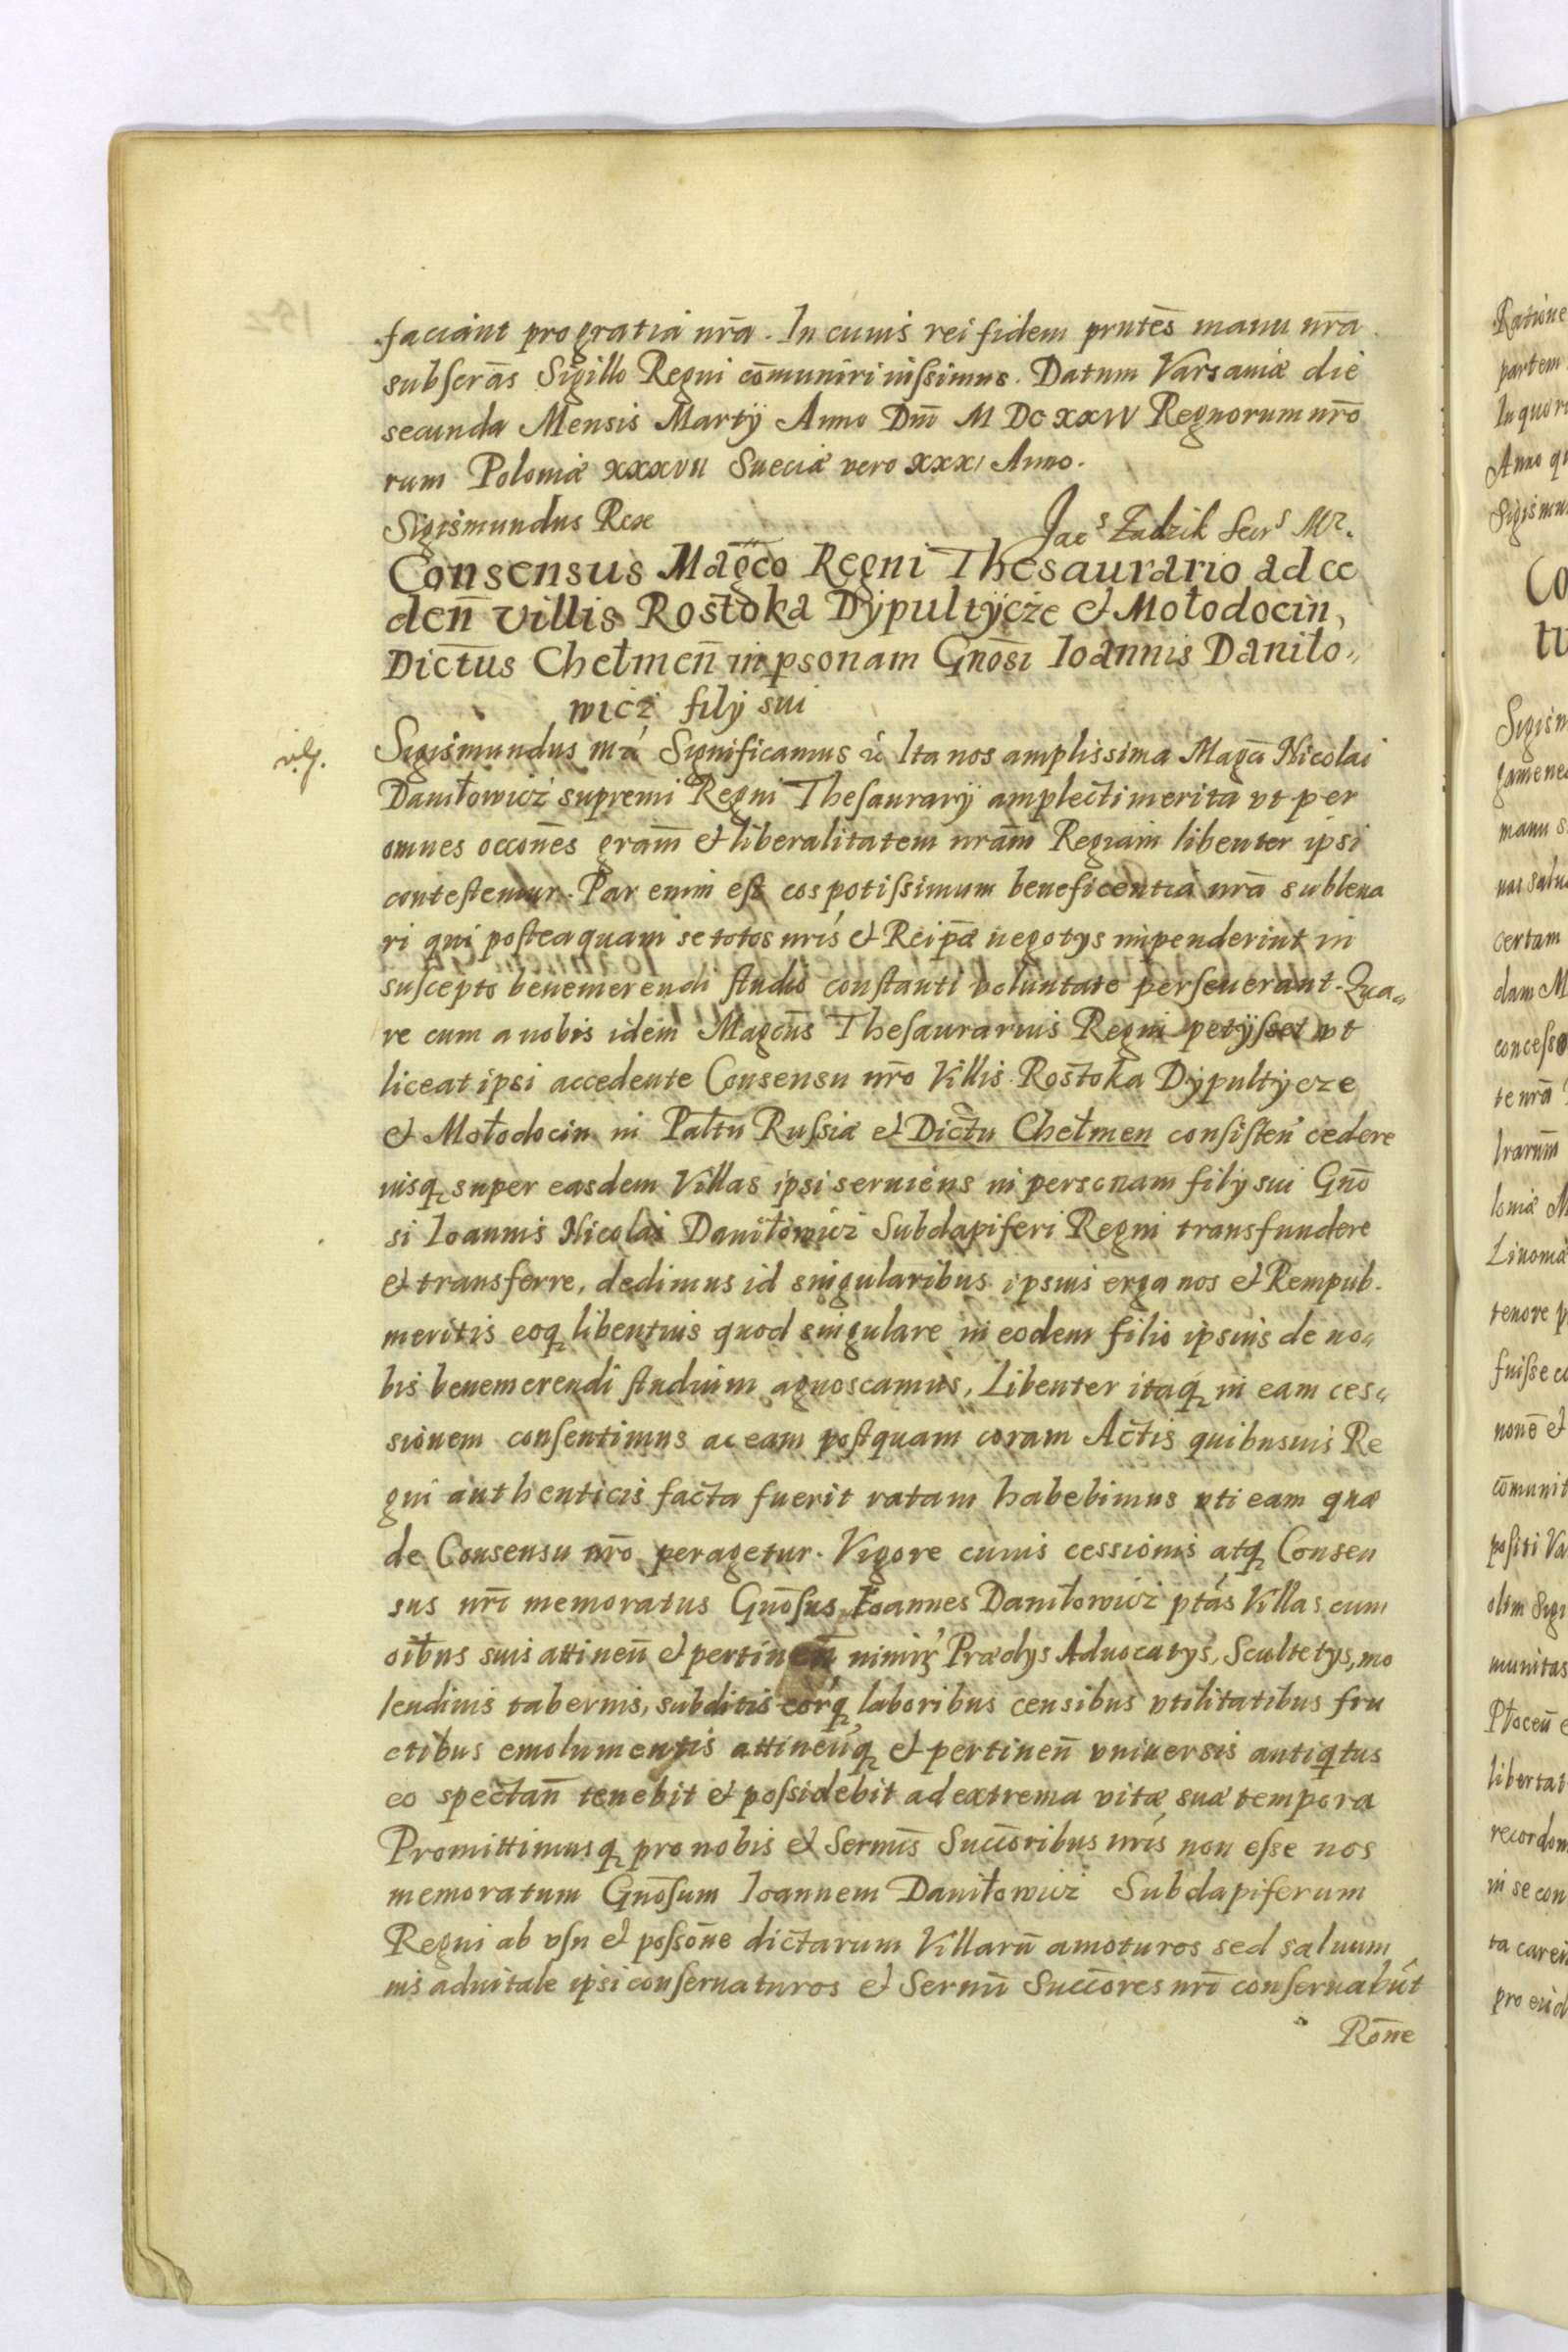 faciant pro gratia nrã. In cuius rei fidem pnũtes manu nrã
subscrãs Sigillo Regni cõmuniri iussimus. Datum Varsaviæ die
secunda Mensis Martÿ Anno Dñi MDCXXIV Regnorum nrõ
rum Poloniæ XXXVII Sueciæ vero XXXI Anno.
Sigismundus Rex
Jacs Zadzik Secrs Mr.
Consensus Magco Regni Thesaurario ad ce
den̄ villis Rostoka Dÿpultÿcze & Mołodocin,
Dictus Chełmen̄ in psonam Gnõsi Ioannis Daniło„
wicz filÿ sui
Sigismundus Significamus Ita nos amplissima Magci Nicolai
Daniłowicz supremi Regni Thesaurarÿ amplecti merita vt per
omnes occones gram̄ & liberalitatem nram̄ Regiam libenter ipsi
contestemur. Par enim est eos potissimum beneficentia nrã subleua
ri qui posteaquam se totos nris & Reipæ negotÿs impenderint in
suscepto benemerendi studio constanti voluntate perseuerant. Qua„
re cum a nobis idem Magcus Thesaurarius Regni petÿsset vt
liceat ipsi accedente Consensu nrõ Villis Rostoka Dÿpultÿcze
& Mołodocin in Pałtu Russiæ & Dictu Chełmen consisten̄ cedere
iusq super easdem Villas ipsi seruiens in personam filÿ sui Gnõ
si Ioannis Nicolai Daniłowicz Subdapiferi Regni transfundere
& transferre, dedimus id singularibus ipsius erga nos & Rempub.
meritis eoq libentius quod singulare in eodem filio ipsius de no„
bis benemerendi studium agnoscamus, Libenter itaq in eam ces„
sionem consentimus ac eam postquam coram Actis quibusuis Re
gni authenticis facta fuerit ratam habebimus vti eam quæ
de Consensu nrõ peragetur. Vigore cuius cessionis atq Consen
sus nrĩ memoratus Gnõsus Ioannes Daniłowicz ptãs Villas cum
oĩbus suis attinen̄ & pertinen̄ nimir Prædÿs Aduocatÿs, Scultetÿs, mo
lendinis tabernis, subditis eorq laboribus censibus vtilitatibus fru
ctibus emolumentis attinen̄q & pertinen̄ vniuersis antiqtus
eo spectan̄ tenebit & possidebit ad extrema vitæ suæ tempora
Promittimusq pro nobis & Sermis Succoribus nris non esse nos
memoratum Gnõsum Ioannem Daniłowicz Subdapiferum
Regni ab vsu & possõne dictarum Villarū amoturos sed saluum
ius aduitale ipsi conseruaturos & Sermi Succores nrĩ conseruabūt
Rõne